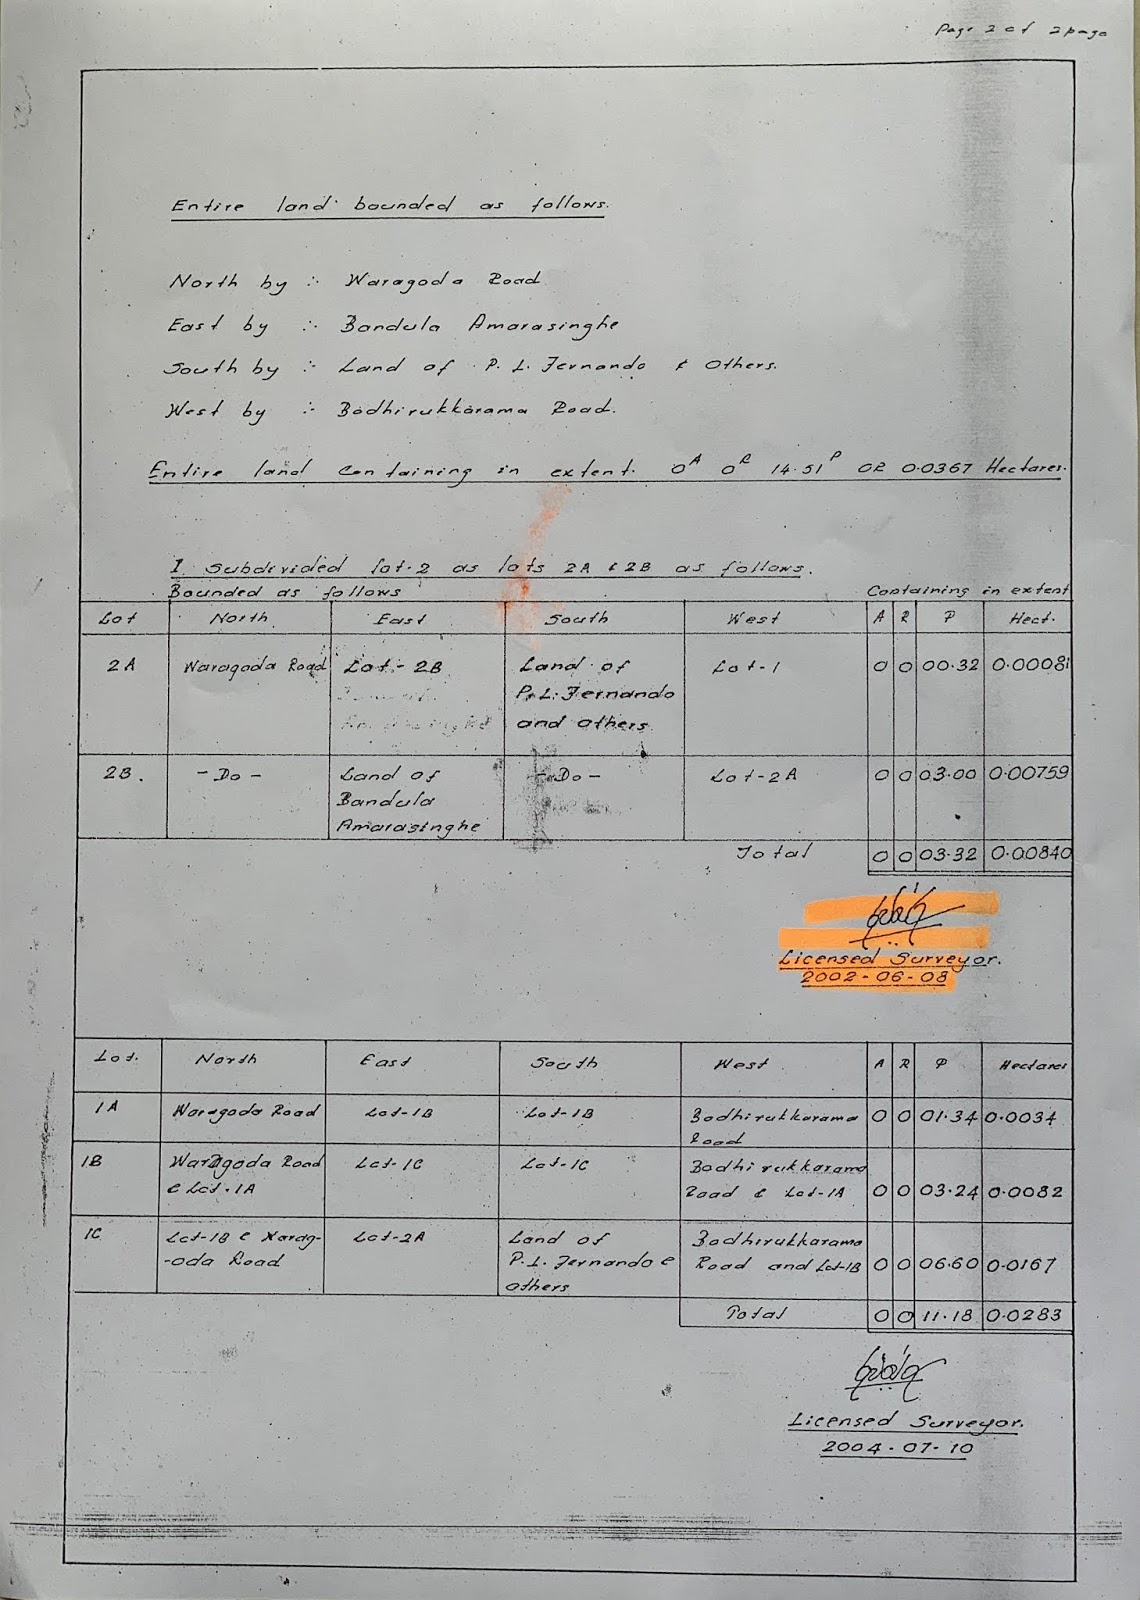 Page 2 of 2 page
Entire land bounded as follows.
North by :- Waragoda Road
East by :- Bandula Amarasinghe
South by :- Land of P. L. Fernando & Others.
West by :- Bodhirukkarama Road.
Entire land Containing in extent. 0ᴬ 0ᴿ 14.51ᴾ OR 0.0367 Hectares.
I Subdivided lot-2 as lots 2A & 2B as follows.
Bounded as follows Containing in extent
Lot North East South West A R P Hect.
2A Waragoda Road Lot-2B Land of Lot-1 0 0 00.32 0.00081
P. L. Fernando
and others
2B. -Do- Land of -Do- Lot-2A 0 0 03.00 0.00759
Bandula
Amarasinghe
Total 0 0 03.32 0.00840
Licensed Surveyor.
2002-06-08
Lot. North East South West A R P Hectares
1A Waragoda Road Lot-1B Lot-1B Bodhirukkarama 0 0 01.34 0.0034
Road
1B Waragoda Road Lot-1C Lot-1C Bodhirukkarama
& Lot-1A Road & Lot-1A 0 0 03.24 0.0082
1C Lot-1B & Warag- Lot-2A Land of Bodhirukkarama
-oda Road P. L. Fernando & Road and Lot-1B 0 0 06.60 0.0167
others
Total 0 0 11.18 0.0283
Licensed Surveyor.
2004-07-10